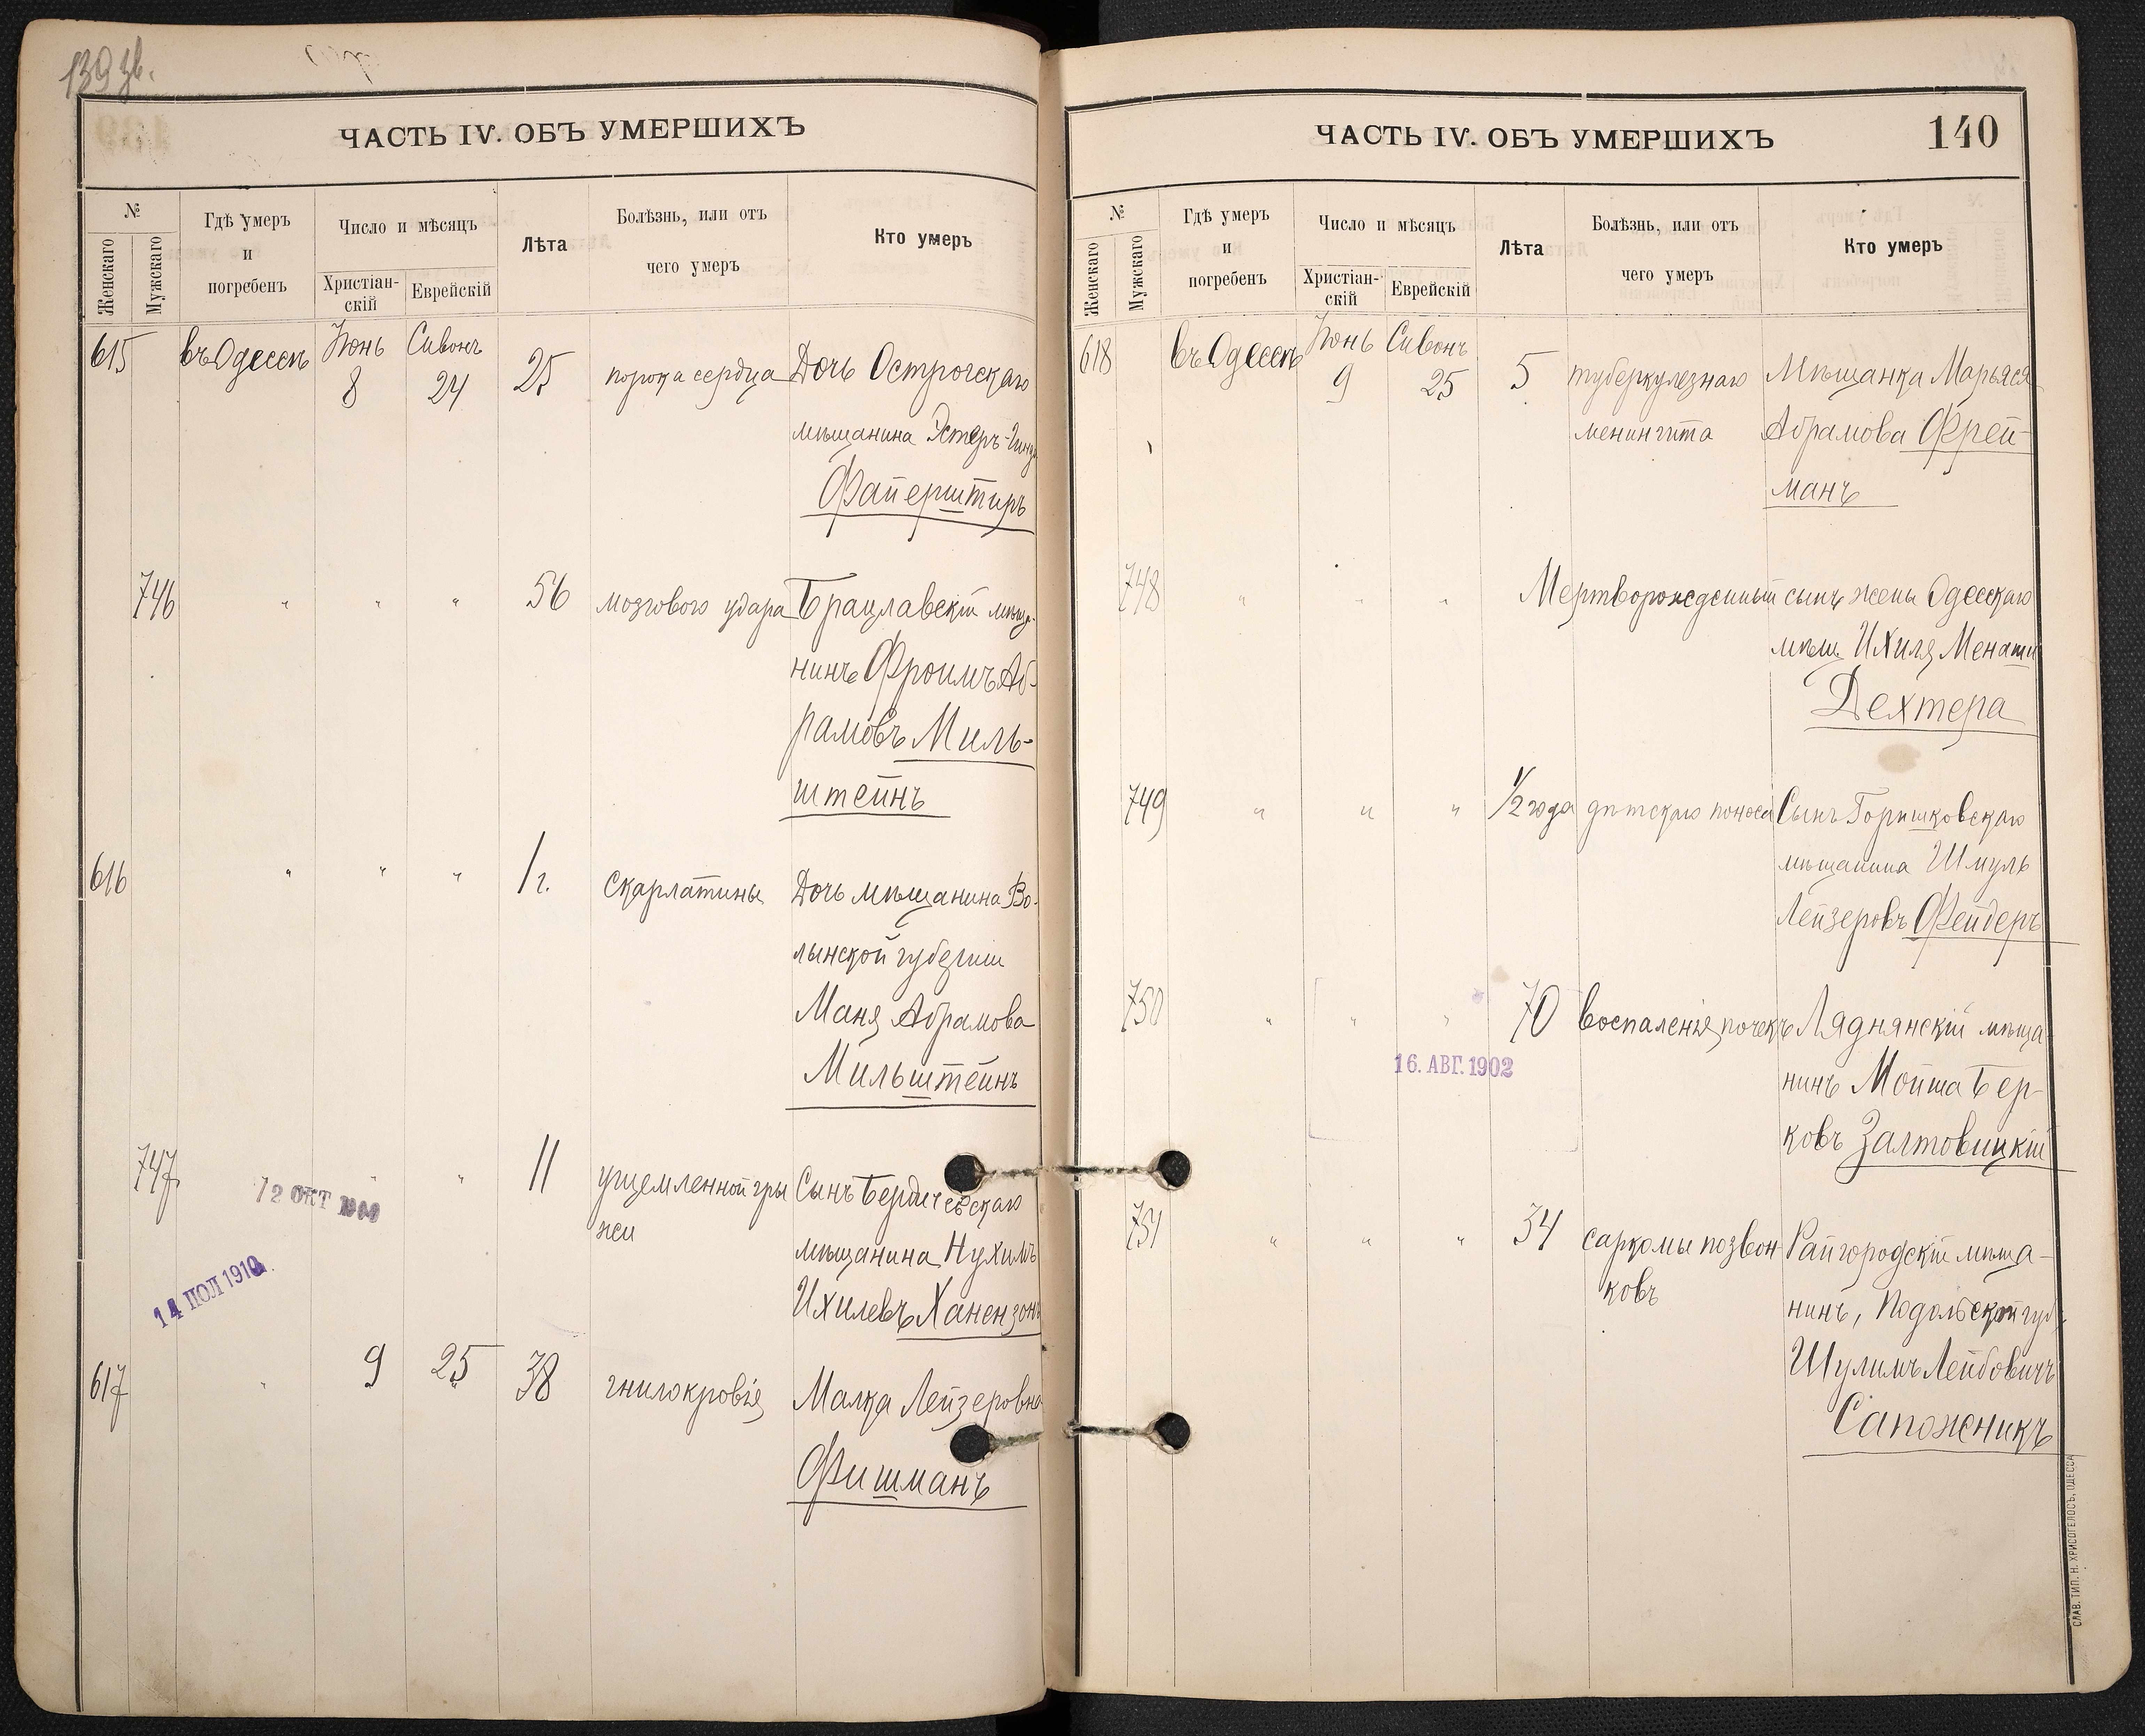 139 зв.
ЧАСТЬ IV. ОБЪ УМЕРШИХЪ
№
Женскаго
Мужскаго
Гдѣ умеръ
и
погребенъ
Число и мѣсяцъ
Христіан-
скій
Еврейскій
Лѣта
Болѣзнь, или отъ
чего умеръ
Кто умеръ
615 въ Одессѣ Іюнь 8 Сивонъ 24 25 порока сердца Дочь Острогскаго
мѣщанина Эстеръ-
Файерштиръ
746 " " " 56 мозгового удара Брацлавскій мѣща-
нинъ Фроимъ Аб-
рамовъ Миль-
штейнъ
616 " " " 1 г. скарлатины Дочь мѣщанина Во-
лынской губерніи
Маня Абрамова
Мильштейнъ
747 " " 11 ущемленной гры Сынъ Бердичевскаго
жи
мѣщанина Нухимъ
Ихилевъ Ханензонъ
12 ОКТ
14 ПОЛ 1910
617 " 9 25 38 гнилокровія Малка Лейзеровна
Фишманъ
ЧАСТЬ IV. ОБЪ УМЕРШИХЪ
140
№
Женскаго
Мужскаго
Гдѣ умеръ
и
погребенъ
Число и мѣсяцъ
Христіан-
скій
Еврейскій
Лѣта
Болѣзнь, или отъ
чего умеръ
Кто умеръ
618 въ Одессѣ Іюнь 9 Сивонъ 25 5 туберкулезнаго Мѣщанка Марьяся
менингита Абрамова Фрей-
манъ
748 " " " Мертворожденный сынъ жены Одесскаго
мѣщ. Ихиля Менаши
Дехтера
749 " " " 1/2 года дѣтскаго поноса Сынъ Горишковскаго
мѣщанина Шмуль
Лейзеровъ Фейдеръ
750 " " " 70 воспаленія почекъ Ляднянскій мѣща-
нинъ Мойша Бер-
ковъ Залтовицкій
16. АВГ. 1902
751 " " " 34 саркомы позвон- Райгородскій мѣща-
ковъ нинъ, Подольской губ.
Шулимъ Лейбовичъ
Сапожникъ
СЛАВ. ТИП. Н. ХРИСОГЕЛОСЪ, ОДЕССА